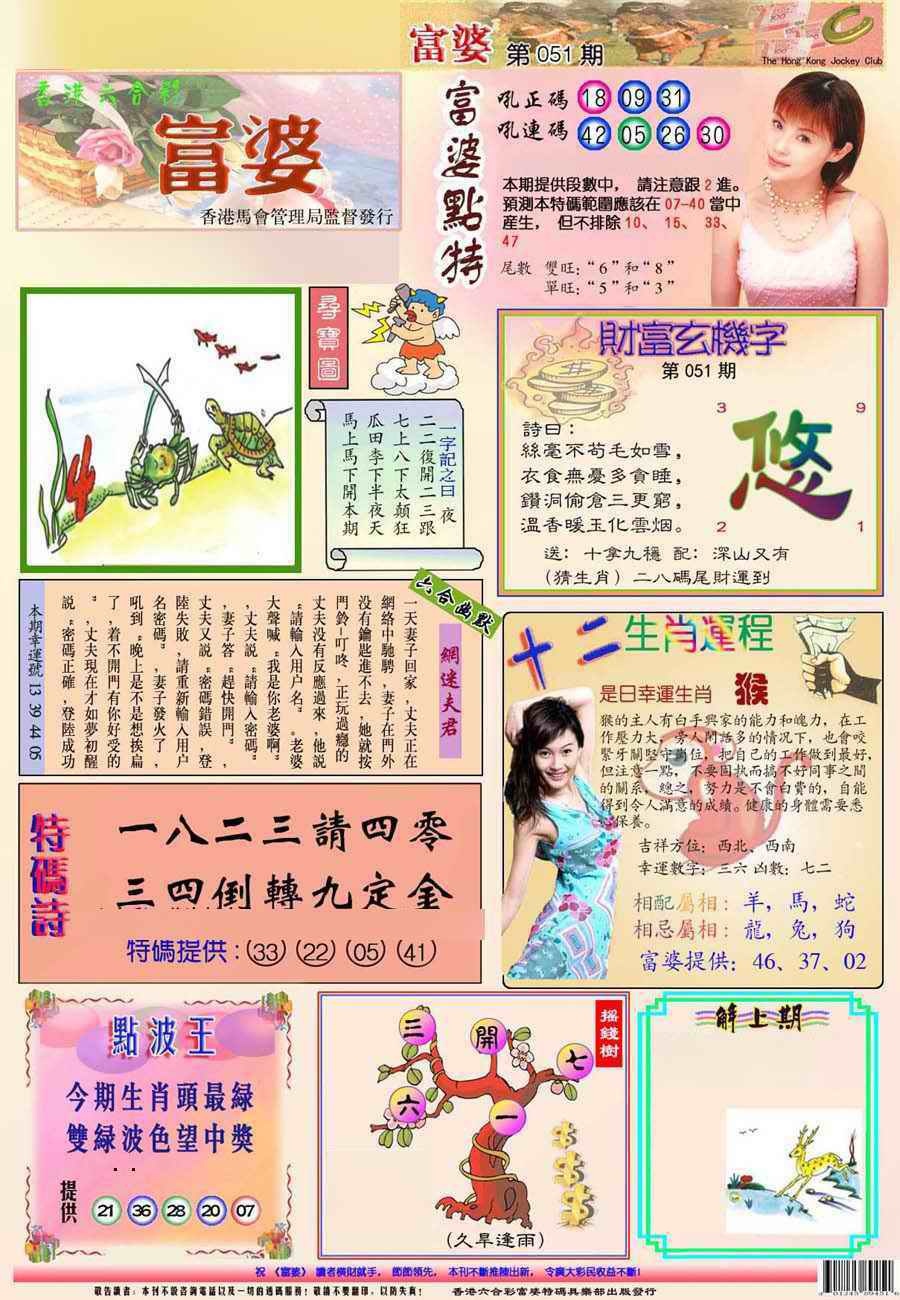 富婆 第051期
The Hong Kong Jockey Club
香港六合彩
富婆
香港馬會管理局監督發行
富婆點特
吼正碼 18 09 31
吼連碼 42 05 26 30
本期提供段數中， 請注意跟2進。
預測本特碼範圍應該在07-40當中
産生， 但不排除10、 15、 33、
47
尾數 雙旺:“6”和“8”
單旺:“5”和“3”
尋寶圖
一字記之曰 夜
二二復開二三跟
七上八下太顛狂
瓜田李下半夜天
馬上馬下開本期
財富玄機字
第051期
詩曰:
絲毫不苟毛如雪，
衣食無憂多貪睡，
鑽洞偷倉三更窮，
溫香暖玉化雲烟。
3 9
悠
2 1
送: 十拿九穩 配: 深山又有
(猜生肖) 二八碼尾財運到
六合幽默
網迷夫君
一天妻子回家,丈夫正在
網絡中馳騁,妻子在門外
没有鑰匙進不去,她就按
門鈴-叮咚,正玩過癮的
丈夫没有反應過來,他説
“請輸入用户名。”老婆
大聲喊“我是你老婆啊”
,丈夫説“請輸入密碼”
,妻子答“趕快開門”,
丈夫又説“密碼錯誤,登
陸失敗,請重新輸入用户
名密碼。”妻子發火了,
吼到“晚上是不是想挨扁
了,着不開門有你好受的
”,丈夫現在才如夢初醒
説“密碼正確,登陸成功
本期幸運號 13 39 44 05
十二生肖運程
是日幸運生肖 猴
猴的主人有白手興家的能力和魄力，在工
作壓力大，旁人閒話多的情況下，也會咬
緊牙關堅守崗位，把自己的工作做到最好,
但注意一點，不要固執而搞不好同事之間
的關系，總之，努力是不會白費的，自能
得到令人滿意的成績。健康的身體需要悉
心保養。
吉祥方位: 西北、西南
幸運數字: 三六 凶數: 七二
相配屬相: 羊, 馬, 蛇
相忌屬相: 龍, 兔, 狗
富婆提供: 46、37、02
特碼詩
一八二三請四零
三四倒轉九定金
特碼提供: 33 22 05 41
點波王
今期生肖頭最緑
雙緑波色望中獎
提供 21 36 28 20 07
摇錢樹
三 開 七
六 一
(久旱逢雨)
解上期
祝 《富婆》 讀者横財就手， 節節領先， 本刊不斷推陳出新， 令廣大彩民收益不斷!
敬告讀者: 本刊不設咨詢電話以及一切的透碼服務! 敬請不要翻印，以防失真!
香港六合彩富婆特碼具樂部出版發行